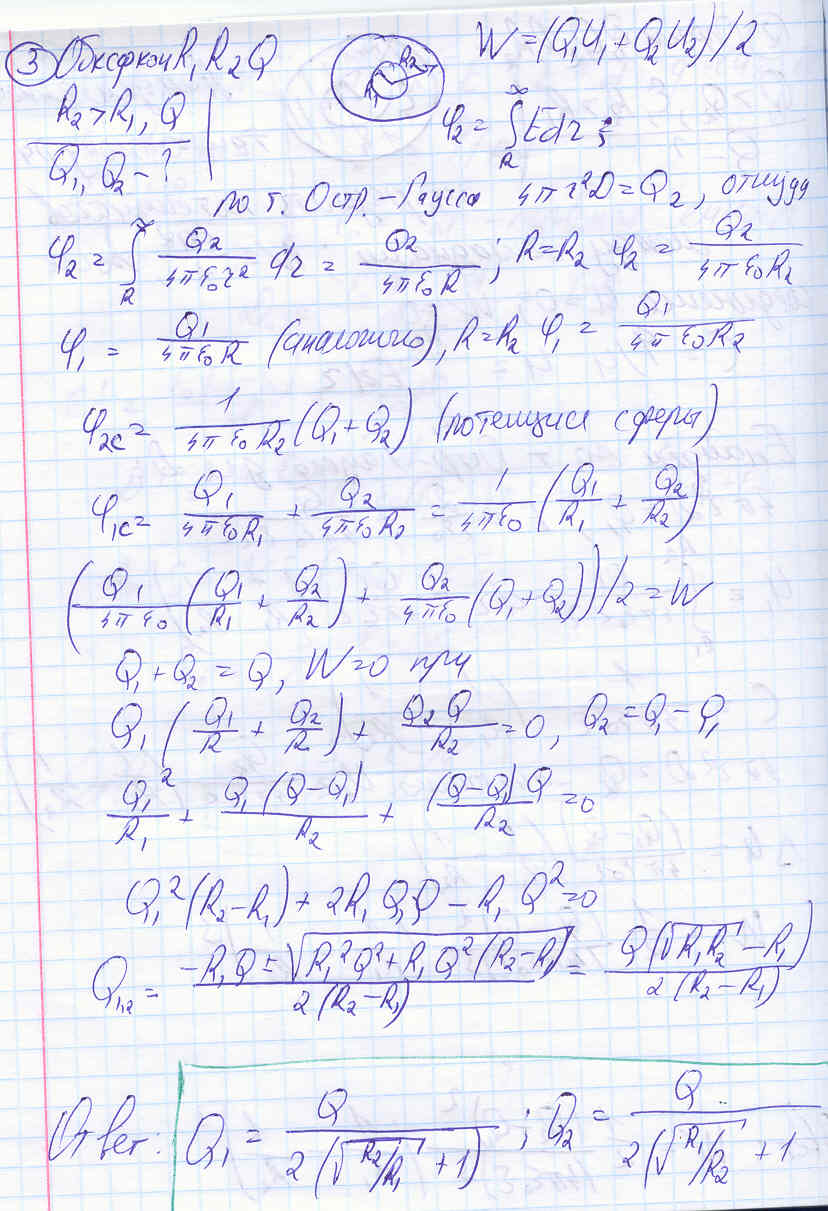 ③ Обксфкои R₁ R₂ Q W = (Q₁U₁ + Q₂U₂)/2
R₂ R₁
R₂ > R₁, Q
Q₁, Q₂ - ? φ₂ = ∫_R^∞ E dr =
по т. Остр.-Гаусса 4πr²D = Q₂, откуда
φ₂ = ∫_R^∞ Q₂/(4πε₀r²) dr = Q₂/(4πε₀R); R = R₂ φ₂ = Q₂/(4πε₀R₂)
φ₁ = Q₁/(4πε₀R) (аналогично), R = R₂ φ₁ = Q₁/(4πε₀R₂)
φ₂c = 1/(4πε₀R₂) (Q₁ + Q₂) (потенциал сферы)
φ₁c = Q₁/(4πε₀R₁) + Q₂/(4πε₀R₂) = 1/(4πε₀) (Q₁/R₁ + Q₂/R₂)
(Q₁/(4πε₀) (Q₁/R₁ + Q₂/R₂) + Q₂/(4πε₀) (Q₁ + Q₂))/2 = W
Q₁ + Q₂ = Q, W = 0 при
Q₁ (Q₁/R + Q₂/R) + Q₂Q/R₂ = 0, Q₂ = Q - Q₁
Q₁²/R₁ + Q₁(Q - Q₁)/R₂ + (Q - Q₁)Q/R₂ = 0
Q₁²(R₂ - R₁) + 2R₁Q₁Q - R₁Q² = 0
Q₁,₂ = (-R₁Q ± √(R₁²Q² + R₁Q²(R₂ - R₁)))/(2(R₂ - R₁)) = Q(√(R₁R₂) - R₁)/(2(R₂ - R₁))
Ответ: Q₁ = Q/(2(√(R₂/R₁) + 1)); Q₂ = Q/(2(√(R₁/R₂) + 1